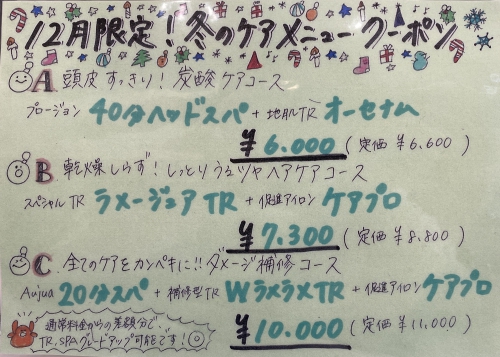 12月限定!冬のケアメニュークーポン
A 頭皮すっきり!炭酸ケアコース
プロージョン 40分ヘッドスパ + 地肌TR オーセナム
¥6.000 (定価 ¥6,600)
B 乾燥しらず!しっとりうるツヤヘアケアコース
スペシャルTR ラメージュアTR + 促進アイロン ケアプロ
¥7.300 (定価 ¥8,800)
C 全てのケアをカンペキに!!ダメージ補修コース
Aujua 20分スパ + 補修型TR WラメラメTR + 促進アイロン ケアプロ
¥10.000 (定価 ¥11,000)
通常料金からの差額分で、
TR、SPAグレードアップ可能です!